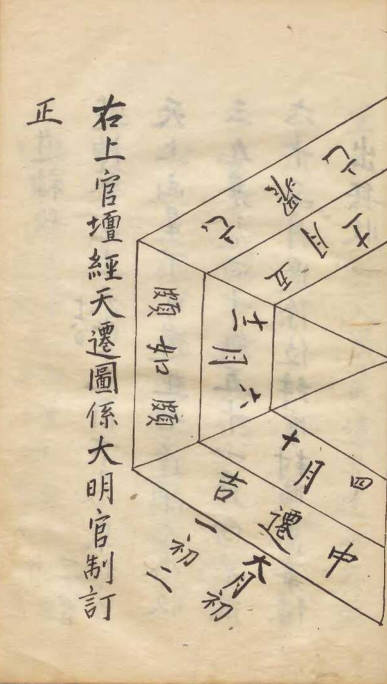 十月四
中遷吉
大月初一初二
十二月六
頤如頤
十一月五
右上官壇經天遷圖係大明官制訂
正